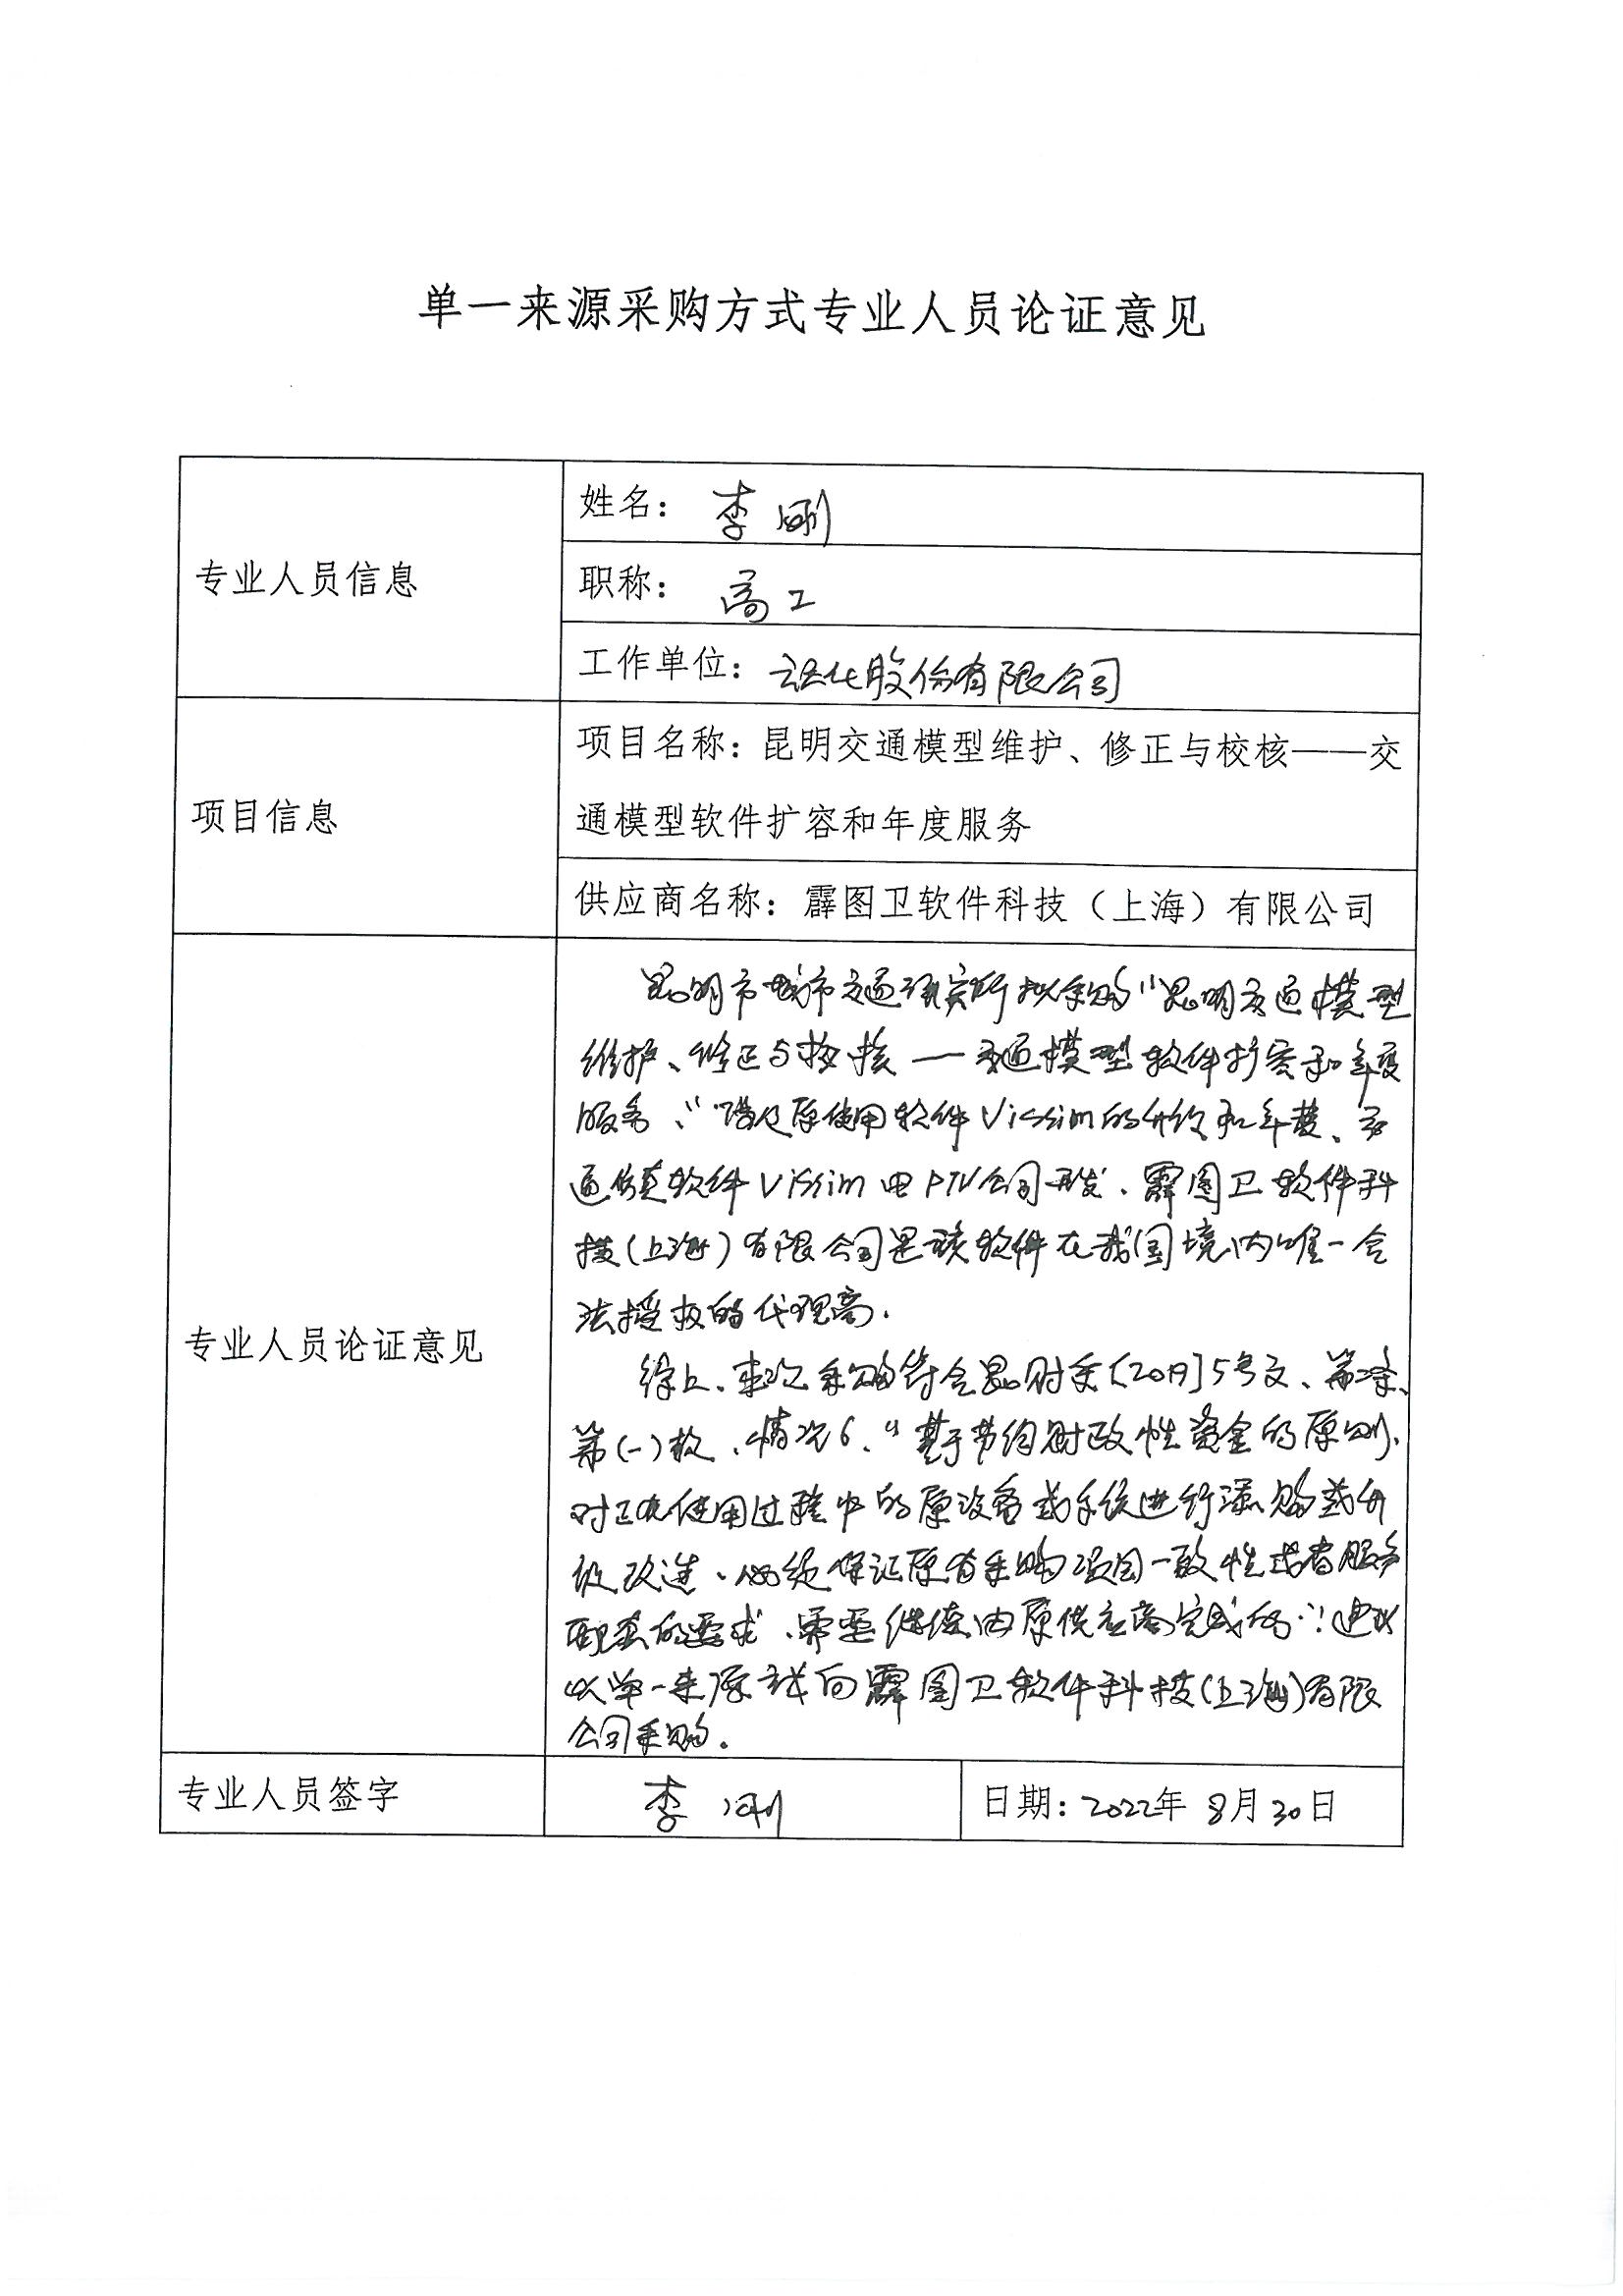 单一来源采购方式专业人员论证意见
专业人员信息
姓名：李刚
职称：高工
工作单位：云化股份有限公司
项目信息
项目名称：昆明交通模型维护、修正与校核——交
通模型软件扩容和年度服务
供应商名称：霹图卫软件科技（上海）有限公司
专业人员论证意见
昆明市城市交通研究所拟采购“昆明交通模型
维护、修正与校核—交通模型软件扩容和年度
服务、”原使用软件Vissim的升级和年费、交
通仿真软件Vissim由PTV公司开发、霹图卫软件科
技(上海)有限公司是该软件在我国境内唯一合
法授权的代理商.
综上、本次采购符合昆财采 5号文、第二条、
第(一)款、情况6、“基于节约财政性资金的原则、
对正在使用过程中的原设备或系统进行添购或升
级改造、必须保证原有采购项目一致性或者服务
配套的要求、需要继续由原供应商完成的”；建议
以单一来源 向霹图卫软件科技(上海)有限
公司采购.
专业人员签字
李刚
日期：2022年8月30日